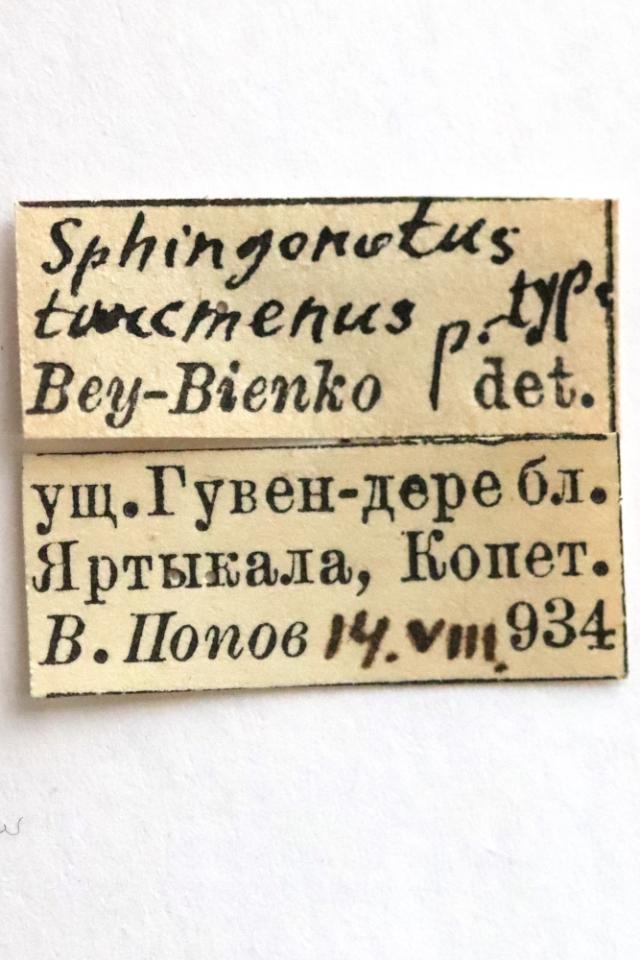 Sphingonotus
turcmenus p. typ.
Bey-Bienko det.
ущ. Гувен-дере бл.
Яртыкала, Копет.
В. Попов 14.VIII.934